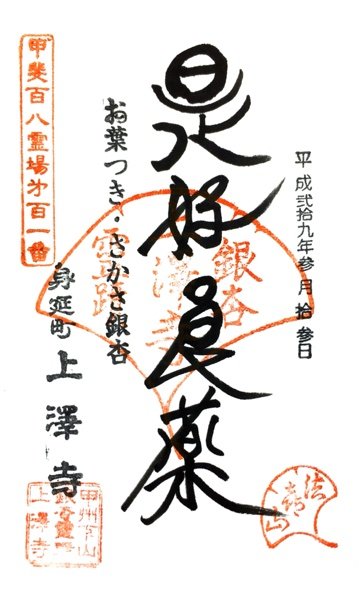 平成弐拾九年参月拾参日
是好良薬
銀杏
上澤寺
霊跡
お葉つき・さかさ銀杏
身延町 上澤寺
甲斐百八霊場第百一番
法喜山
甲州下山
上澤寺